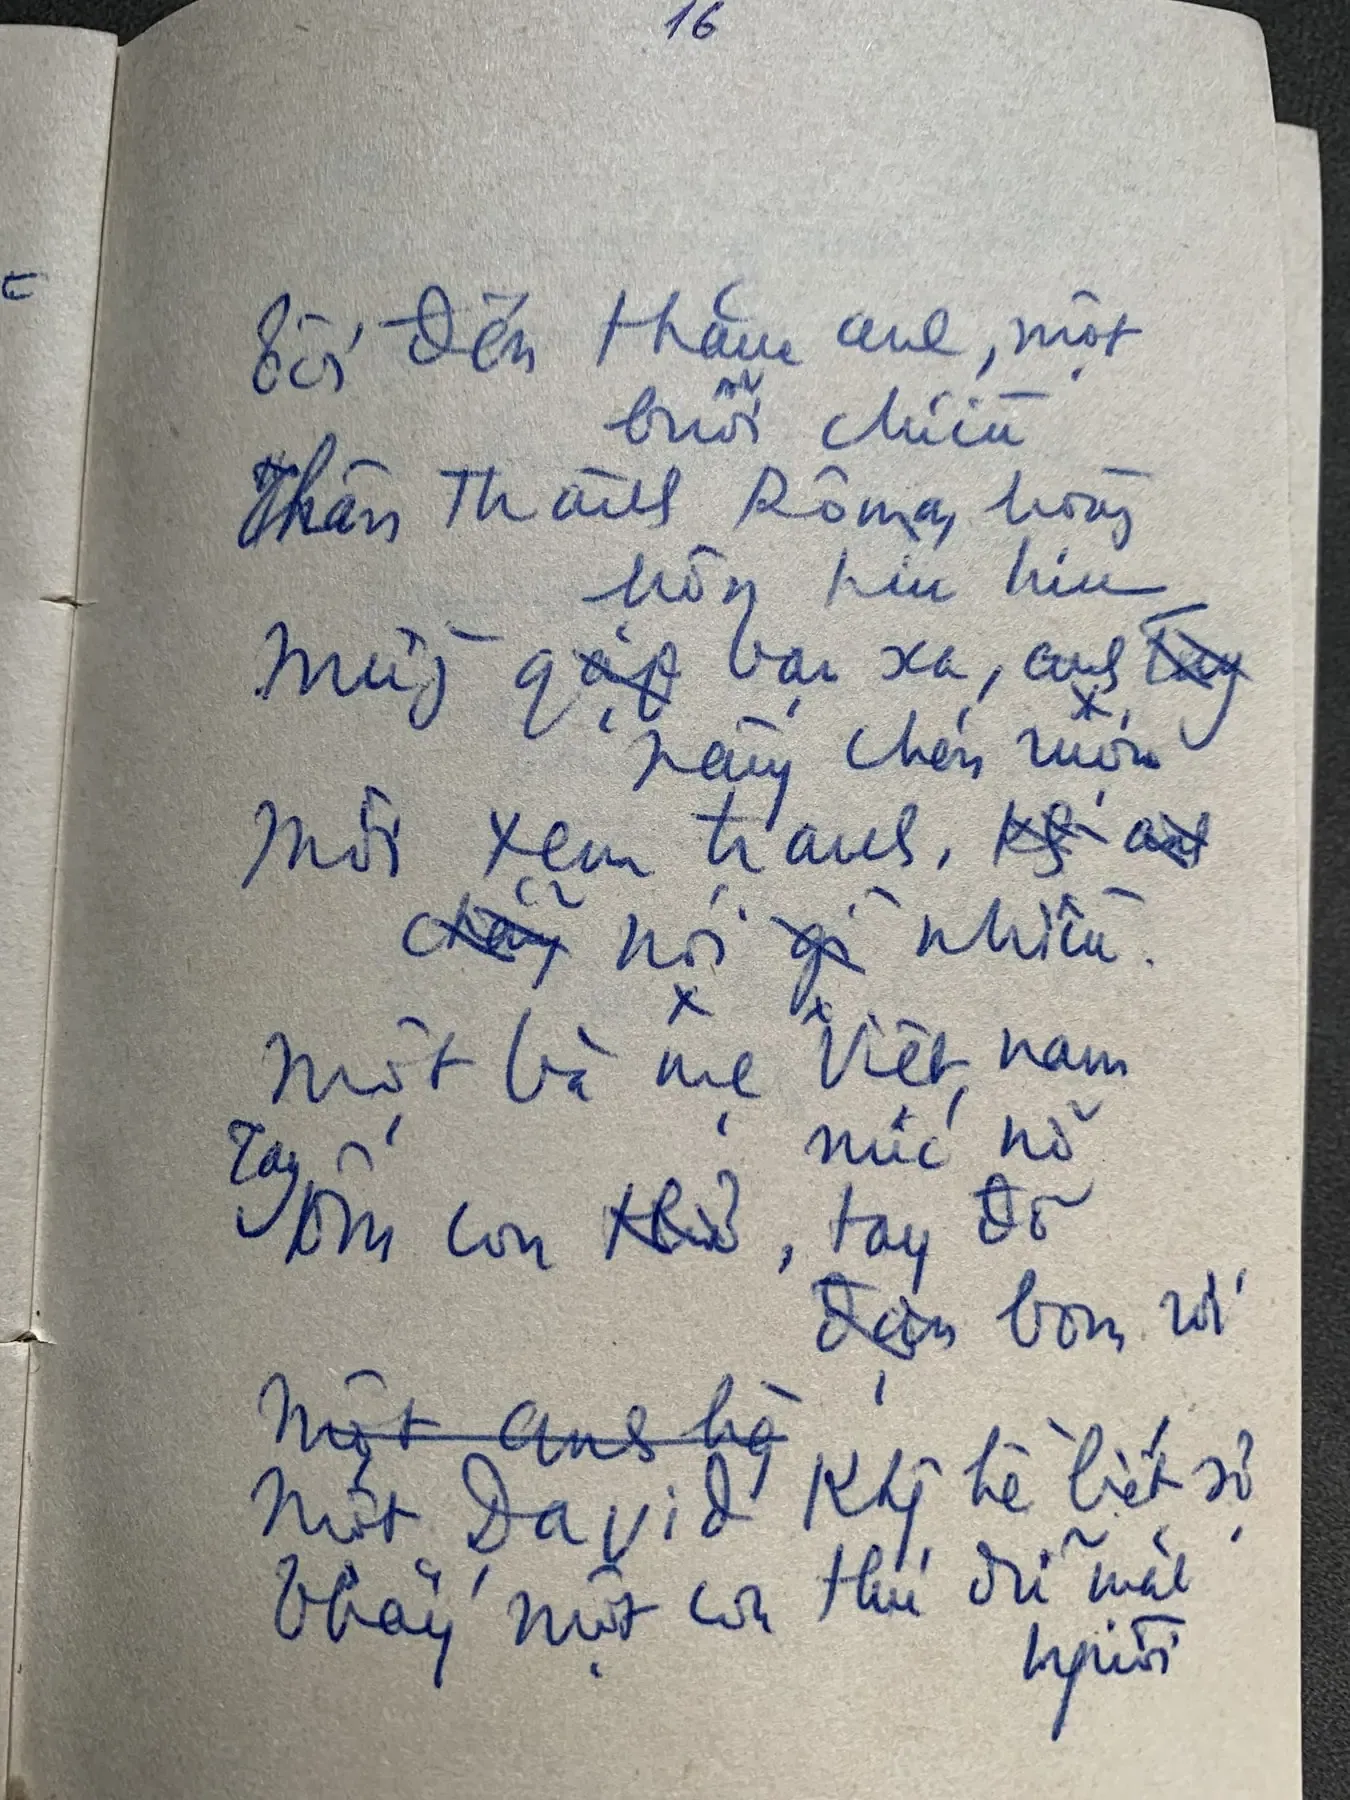 16
Tôi đến thăm anh, một
buổi chiều
Thần Thành Rôma, hoàng
hôn hiu hiu
Mừng gặp bạn xa, anh
nâng chén rượu
Mời xem tranh, không
nói gì nhiều.
Một bà mẹ Việt nam
nức nở
Tay ôm con, tay đỡ
đạn bom rơi
Một anh bộ
Một David không hề biết sợ
Bầy một con thú dữ mặt
người